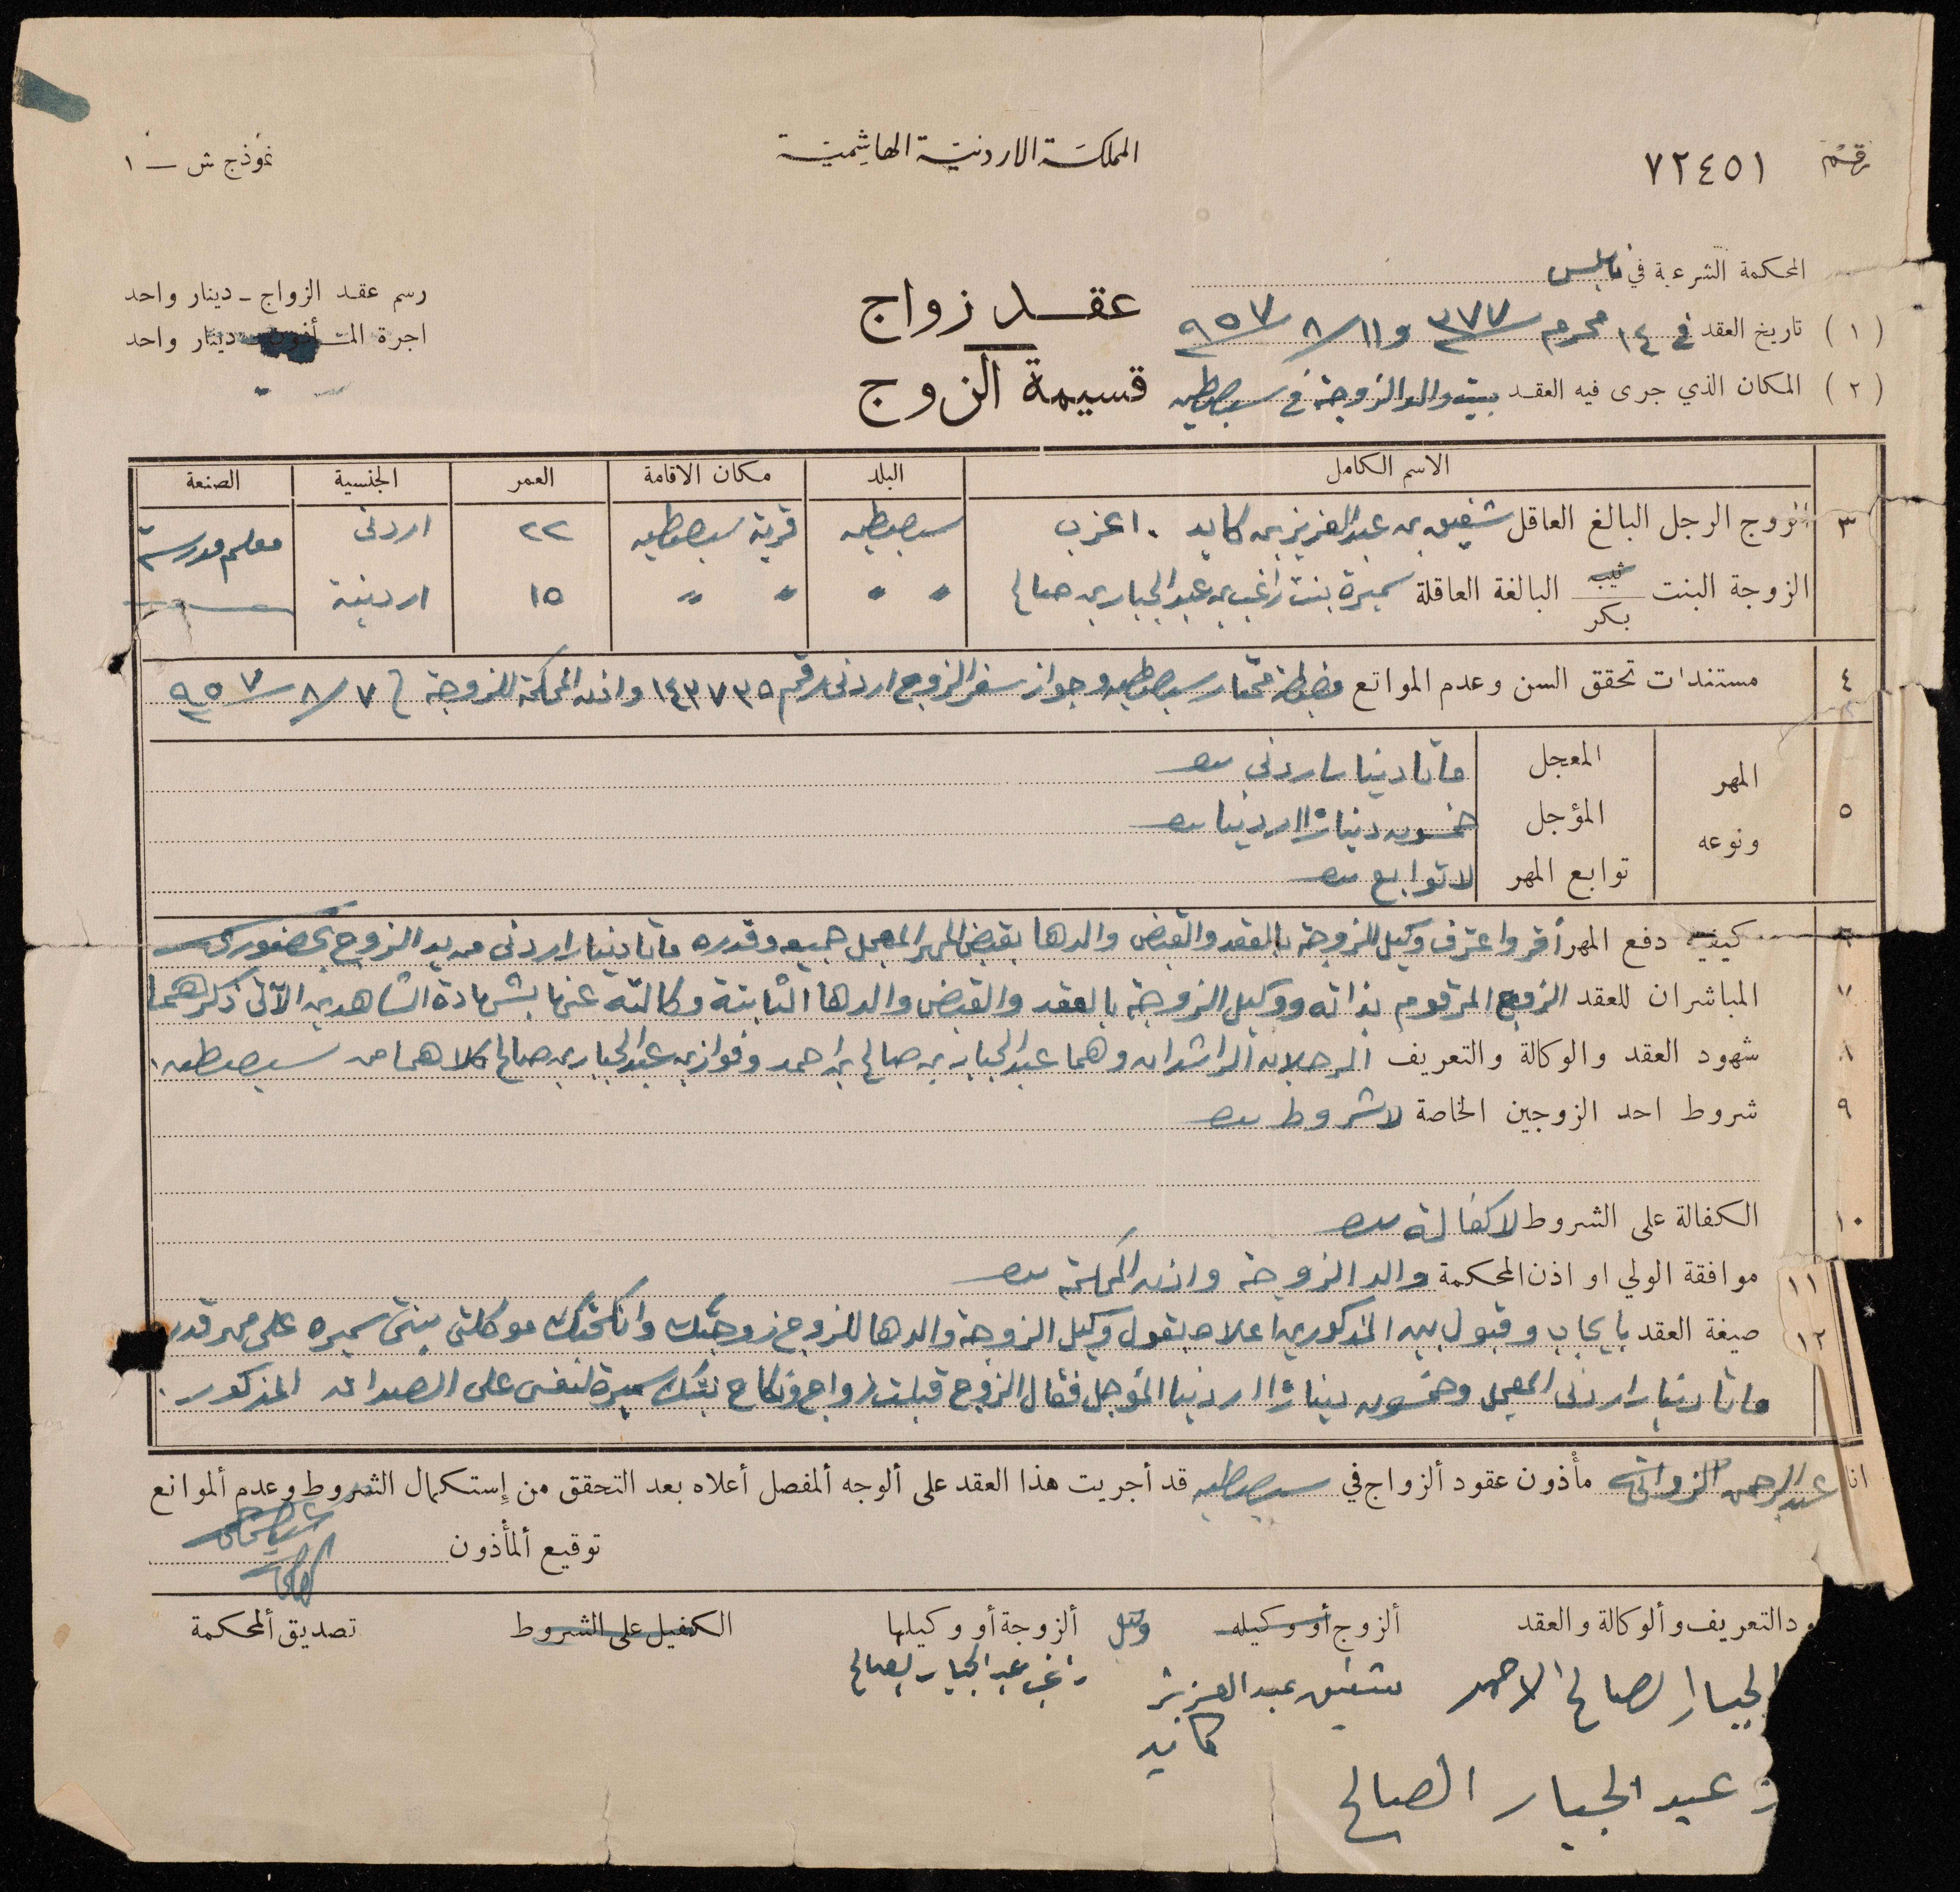 رقم ٧٢٤٥١
المملكة الاردنية الهاشمية
نموذج ش – ١
المحكمة الشرعية في نابلس
(١) تاريخ العقد في ١٤ محرم ٣٧٧ و ١١/٨/٩٥٧
(٢) المكان الذي جرى فيه العقد بيت والد الزوجة في سبسطيه
عقد زواج
قسيمة الزوج
رسم عقد الزواج - دينار واحد
اجرة المأذون - دينار واحد
الاسم الكامل البلد مكان الاقامة العمر الجنسية الصنعة
٣ الزوج الرجل البالغ العاقل شفيق بن عبد العزيز بن كايد . اعزب سبسطيه قرية سبسطيه ٢٢ اردني معلم مدرسة
الزوجة البنت ثيب بكر البالغة العاقلة سميرة بنت راغب بن عبد الجبار بن صالح " " " " ١٥ اردنية
٤ مستندات تحقق السن وعدم الموانع مضبطة مختار سبسطيه وجواز سفر الزوج اردني رقم ١٤٣٧٣٥ واذن المحكمة للزوجة في ٧/٨/٩٥٧
٥ المهر ونوعه
المعجل مائتا دينار اردني
المؤجل خمسون دينارا اردنيا
توابع المهر لا توابع
٦ كيفية دفع المهر أقر واعترف وكيل الزوجة بالعقد والقبض والدها بقبض المهر المعجل جميعه وقدره مائتا دينار اردني من يد الزوج بحضوري
٧ المباشران للعقد الزوج المرقوم بذاته ووكيل الزوجة بالعقد والقبض والدها الثابتة وكالته عنها بشهادة الشاهدين الآتي ذكرهما
٨ شهود العقد والوكالة والتعريف الرجلان الراشدان وهما عبد الجبار بن صالح بن احمد وفواز بن عبد الجبار بن صالح كلاهما من سبسطيه .
٩ شروط احد الزوجين الخاصة لا شروط
١٠ الكفالة على الشروط لا كفالة
١١ موافقة الولي او اذن المحكمة والد الزوجة واذن المحكمة
١٢ صيغة العقد بايجاب وقبول بين المذكورين اعلاه بقول وكيل الزوجة والدها للزوج زوجتك وانكحتك موكلتي بنتي سميره على مهر قدره
مائتا دينار اردني المعجل وخمسون دينارا اردنيا المؤجل فقال الزوج قبلت زواج ونكاح بنتك سميرة لنفسي على الصداق المذكور .
انا عبد الرحمن مأذون عقود ألزواج في سبسطيه قد أجريت هذا العقد على ألوجه ألمفصل أعلاه بعد التحقق من إستكمال الشروط وعدم ألموانع
توقيع ألمأذون
ود التعريف وألوكالة والعقد ألزوج أو وكيله وكيل ألزوجة أو وكيلها الكفيل على الشروط تصديق ألمحكمة
الجبار الصالح الاحمد شفيق عبد العزيز راغب عبد الجبار الصالح
كايد
ز عبد الجبار الصالح